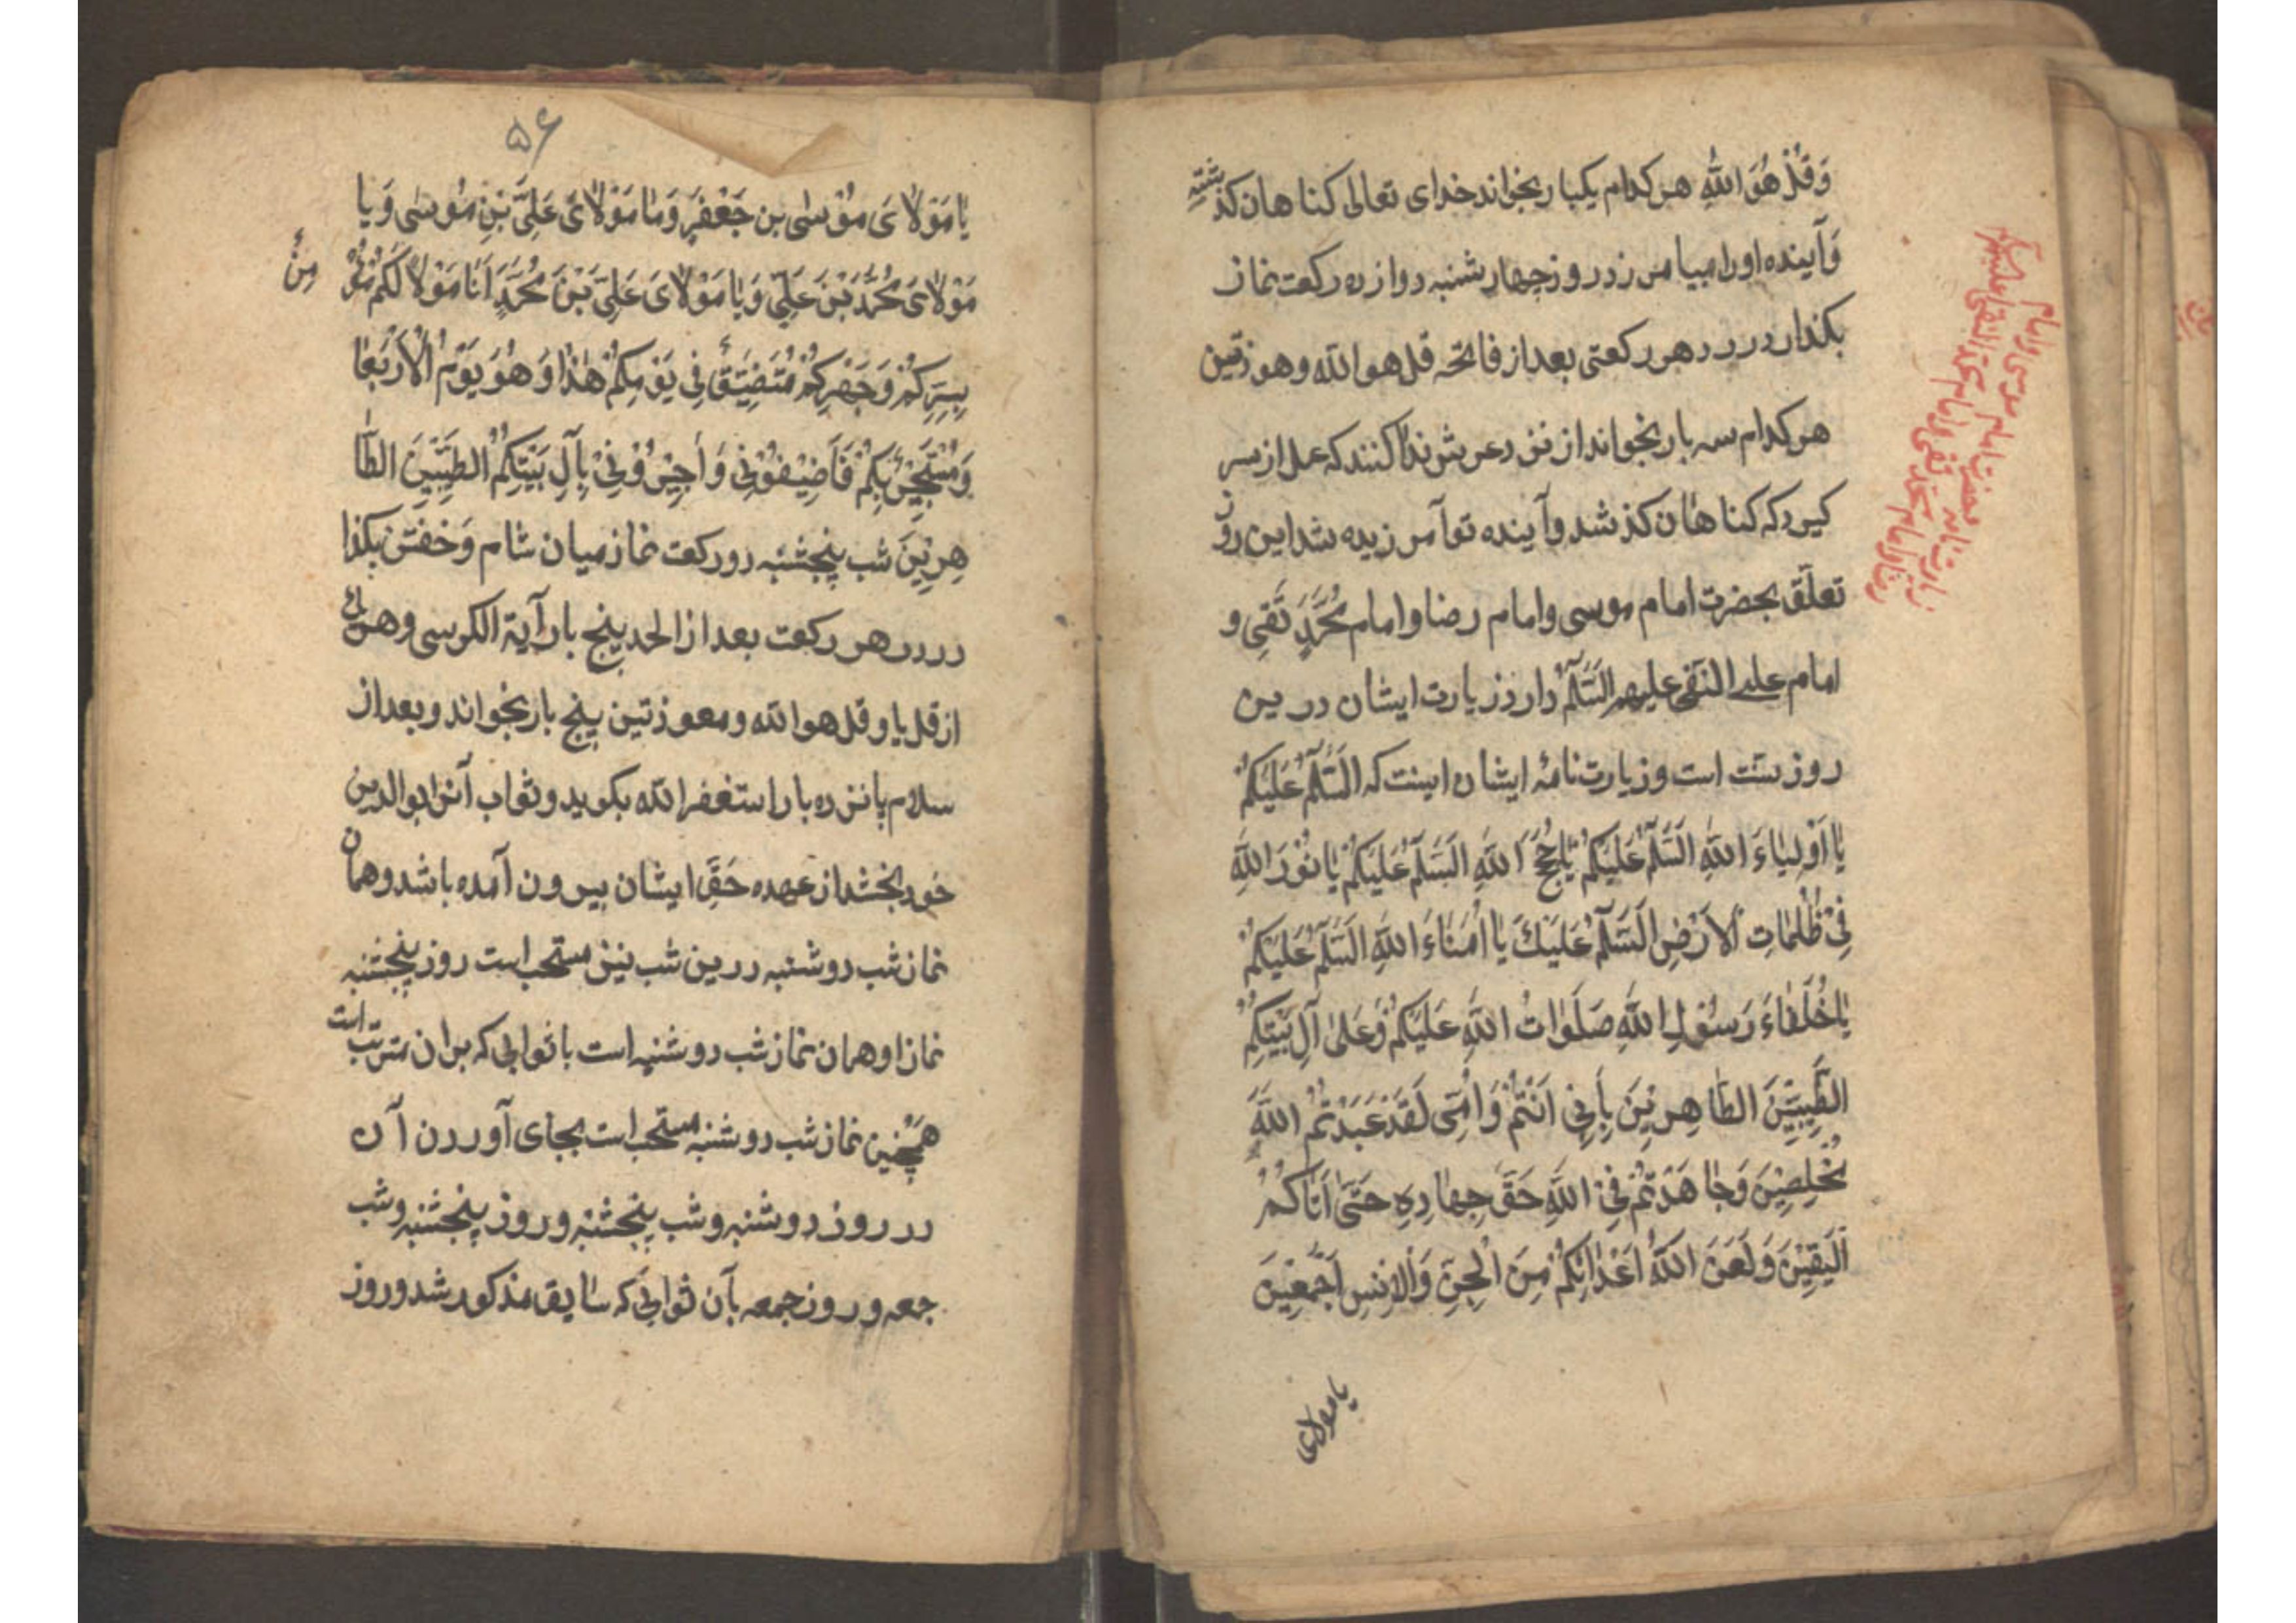 وَقُلْ هُوَ اللّٰهِ هر کدام یکبار بخواند خدای تعالی کناهان کذشته
وَآینده اورا بیامرزد روز چهارشنبه دوازده رکعت نماز
بکذارد در هر رکعتی بعد از فاتحه قل هو الله وهوذتین
هر کدام سه بار بخواند از نزد عرش ندا کنند که عمل از سر
کیر که کناهان کذشد وآینده تو آمرزیده شد این روز
تعلّق بحضرت امام موسی وامام رضا وامام مُحَمَّدِ تَقی و
امام علی النقی علیهم السَّلَامُ دارد زیارت ایشان درین
روز سنّت است وزیارت نامهٔ ایشان اینست که السَّلَامُ عَلَیْکُمْ
یٰا اَوْلِیٰاءَ اللّٰهِ اَلسَّلَامُ عَلَیْکُمْ یٰا حُجَجَ اللّٰهِ اَلسَّلَامُ عَلَیْکُمْ یٰا نُوْرَ اللّٰهِ
فِیْ ظُلُمٰاتِ الْاَرْضِ اَلسَّلَامُ عَلَیْكَ یٰا اُمَنٰاءَ اللّٰهِ اَلسَّلَامُ عَلَیْکُمْ
یٰا خُلَفٰاءَ رَسُوْلِ اللّٰهِ صَلَوٰاتُ اللّٰهِ عَلَیْکُمْ وَعَلٰی آلِ بَیْتِکُمْ
الطَّیِّبِیْنَ الطّٰاهِرِیْنَ بِأَبِیْ اَنْتُمْ وَاُمِّی لَقَدْ عَبَدْتُمُ اللّٰهَ
مُخْلِصِیْنَ وَجٰاهَدْتُمْ فِیْ اللّٰهِ حَقَّ جِهٰادِهِ حَتّٰی اَتٰاکُمُ
الْیَقِیْنَ وَلَعَنَ اللّٰهُ اَعْدٰائَکُمْ مِنَ الْجِنِّ وَالْاِنْسِ اَجْمَعِیْنَ
یا مولای
۵۶
یٰا مَوْلٰایَ مُوْسٰی بن جَعْفَرٍ وَیٰا مَوْلٰایَ عَلِیَّ بْنِ مُوسٰی وَیا
مَوْلٰایَ مُحَمَّدَ بْنَ عَلِیٍّ وَیٰا مَوْلٰایَ عَلِیَّ بْنَ مُحَمَّدٍ اَنٰا مَوْلاً لَکُمْ مُؤْ
مِنٌ
بِسِرِّکُمْ وَجَهْرِکُمْ مُتَضَیِّفٌ فِی یَوْمِکُمْ هٰذٰا وَهُوَ یَوْمُ الْاَرْبَعٰا
وَمُسْتَجِیْرٌ بِکُمْ فَاَضِیْفُوْنِی وَاَجِیْرُوْنِیْ بِآلِ بَیْتِکُمُ الطَّیِّبِیْنَ الطّٰا
هِرِیْنَ شب پنجشنبه دو رکعت نماز میان شام وَخفتن بکذا
رد در هر رکعت بعد از الحمد پنج بار آیة الکرسی وهر یک
از قل یا وقل هو الله ومعوذتین پنج بار بخواند وبعد از
سلام پانزده بار استغفر الله بکوید وثواب آنرا بوالدین
خود بخشد از عهده حَقِّ ایشان بیرون آمده باشد وهمان
نماز شب دوشنبه درین شب نیز مستحب است روز پنجشنبه
نماز او همان نماز شب دوشنبه است با ثوابی که بران مترتب است
همچنین نماز شب دوشنبه مستحب است بجای آوردن آن
در روز دوشنبه وشب پنجشنبه وروز پنجشنبه وشب
جمعه وروز جمعه بآن ثوابی که سٰابق مذکور شد وروز